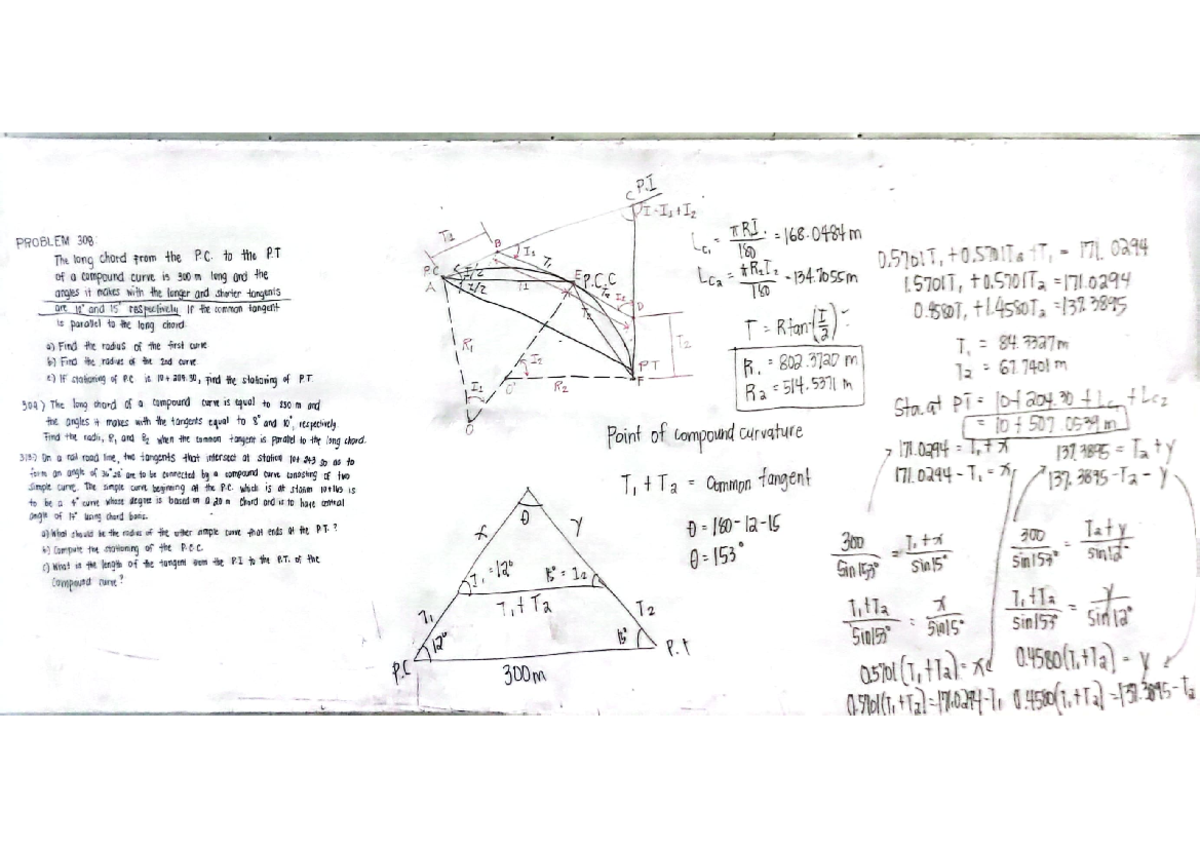 PROBLEM 308:
The long chord from the P.C. to the P.T
of a compound curve is 300 m long and the
angles it makes with the longer and shorter tangents
are 12° and 15° respectively. If the common tangent
is parallel to the long chord.
a) Find the radius of the first curve
b) Find the radius of the 2nd curve
c) If stationing of P.C is 10+204.30, find the stationing of P.T
309) The long chord of a compound curve is equal to m and
the angles it makes with the tangents equal to 8° and 10°, respectively.
Find the radii, R1 and R2 when the common tangent is parallel to the long chord.
On a rail road line, two tangents that intersect at station so as to
form an angle of are to be connected by a compound curve consisting of two
simple curve. The simple curve beginning at the P.C. which is at station is
to be a 4° curve whose degree is based on a 20 m chord and is to have central
angle of using chord basis.
a) What should be the radius of the other simple curve that ends at the P.T.?
b) Compute the stationing of the P.C.C.
c) What is the length of the tangent from the P.I to the P.T. of the
compound curve?
C P.I
I=I1+I2
B
I1
T1
P.C
A
I1/2
I/2
E P.C.C
D
R1
I2
T2
I1
O'
R2
P.T
F
O
Lc1 = πRI1/180 = 168.0484 m
Lc2 = πR2I2/180 = 134.7055m
T = Rtan(I/2)
R1 = 802.3720 m
R2 = 514.5371 m
Point of compound curvature
T1 + T2 = Common tangent
θ = 180-12-15
θ = 153°
θ
x
y
I1=12°
15°=I2
T1 + T2
T1
T2
12°
15°
P.C
P.T
300m
0.5701T1 + 0.5701T2 + T1 = 171.0294
1.5701T1 + 0.5701T2 = 171.0294
0.4580T1 + 1.4580T2 = 137.3895
T1 = 84.3327m
T2 = 67.7401 m
Sta. at PT = 10+204.30 + Lc1 + Lc2
= 10+507.0539 m
171.0294 = T1 + x
171.0294 - T1 = x
137.3895 = T2 + y
137.3895 - T2 = y
300/sin153° = T1+x/sin15°
300/sin153° = T2+y/sin12°
T1+T2/sin153° = x/sin15°
T1+T2/sin153° = y/sin12°
0.5701(T1+T2) = x
0.4580(T1+T2) = y
0.5701(T1+T2) = 171.0294-T1
0.4580(T1+T2) = 137.3895-T2